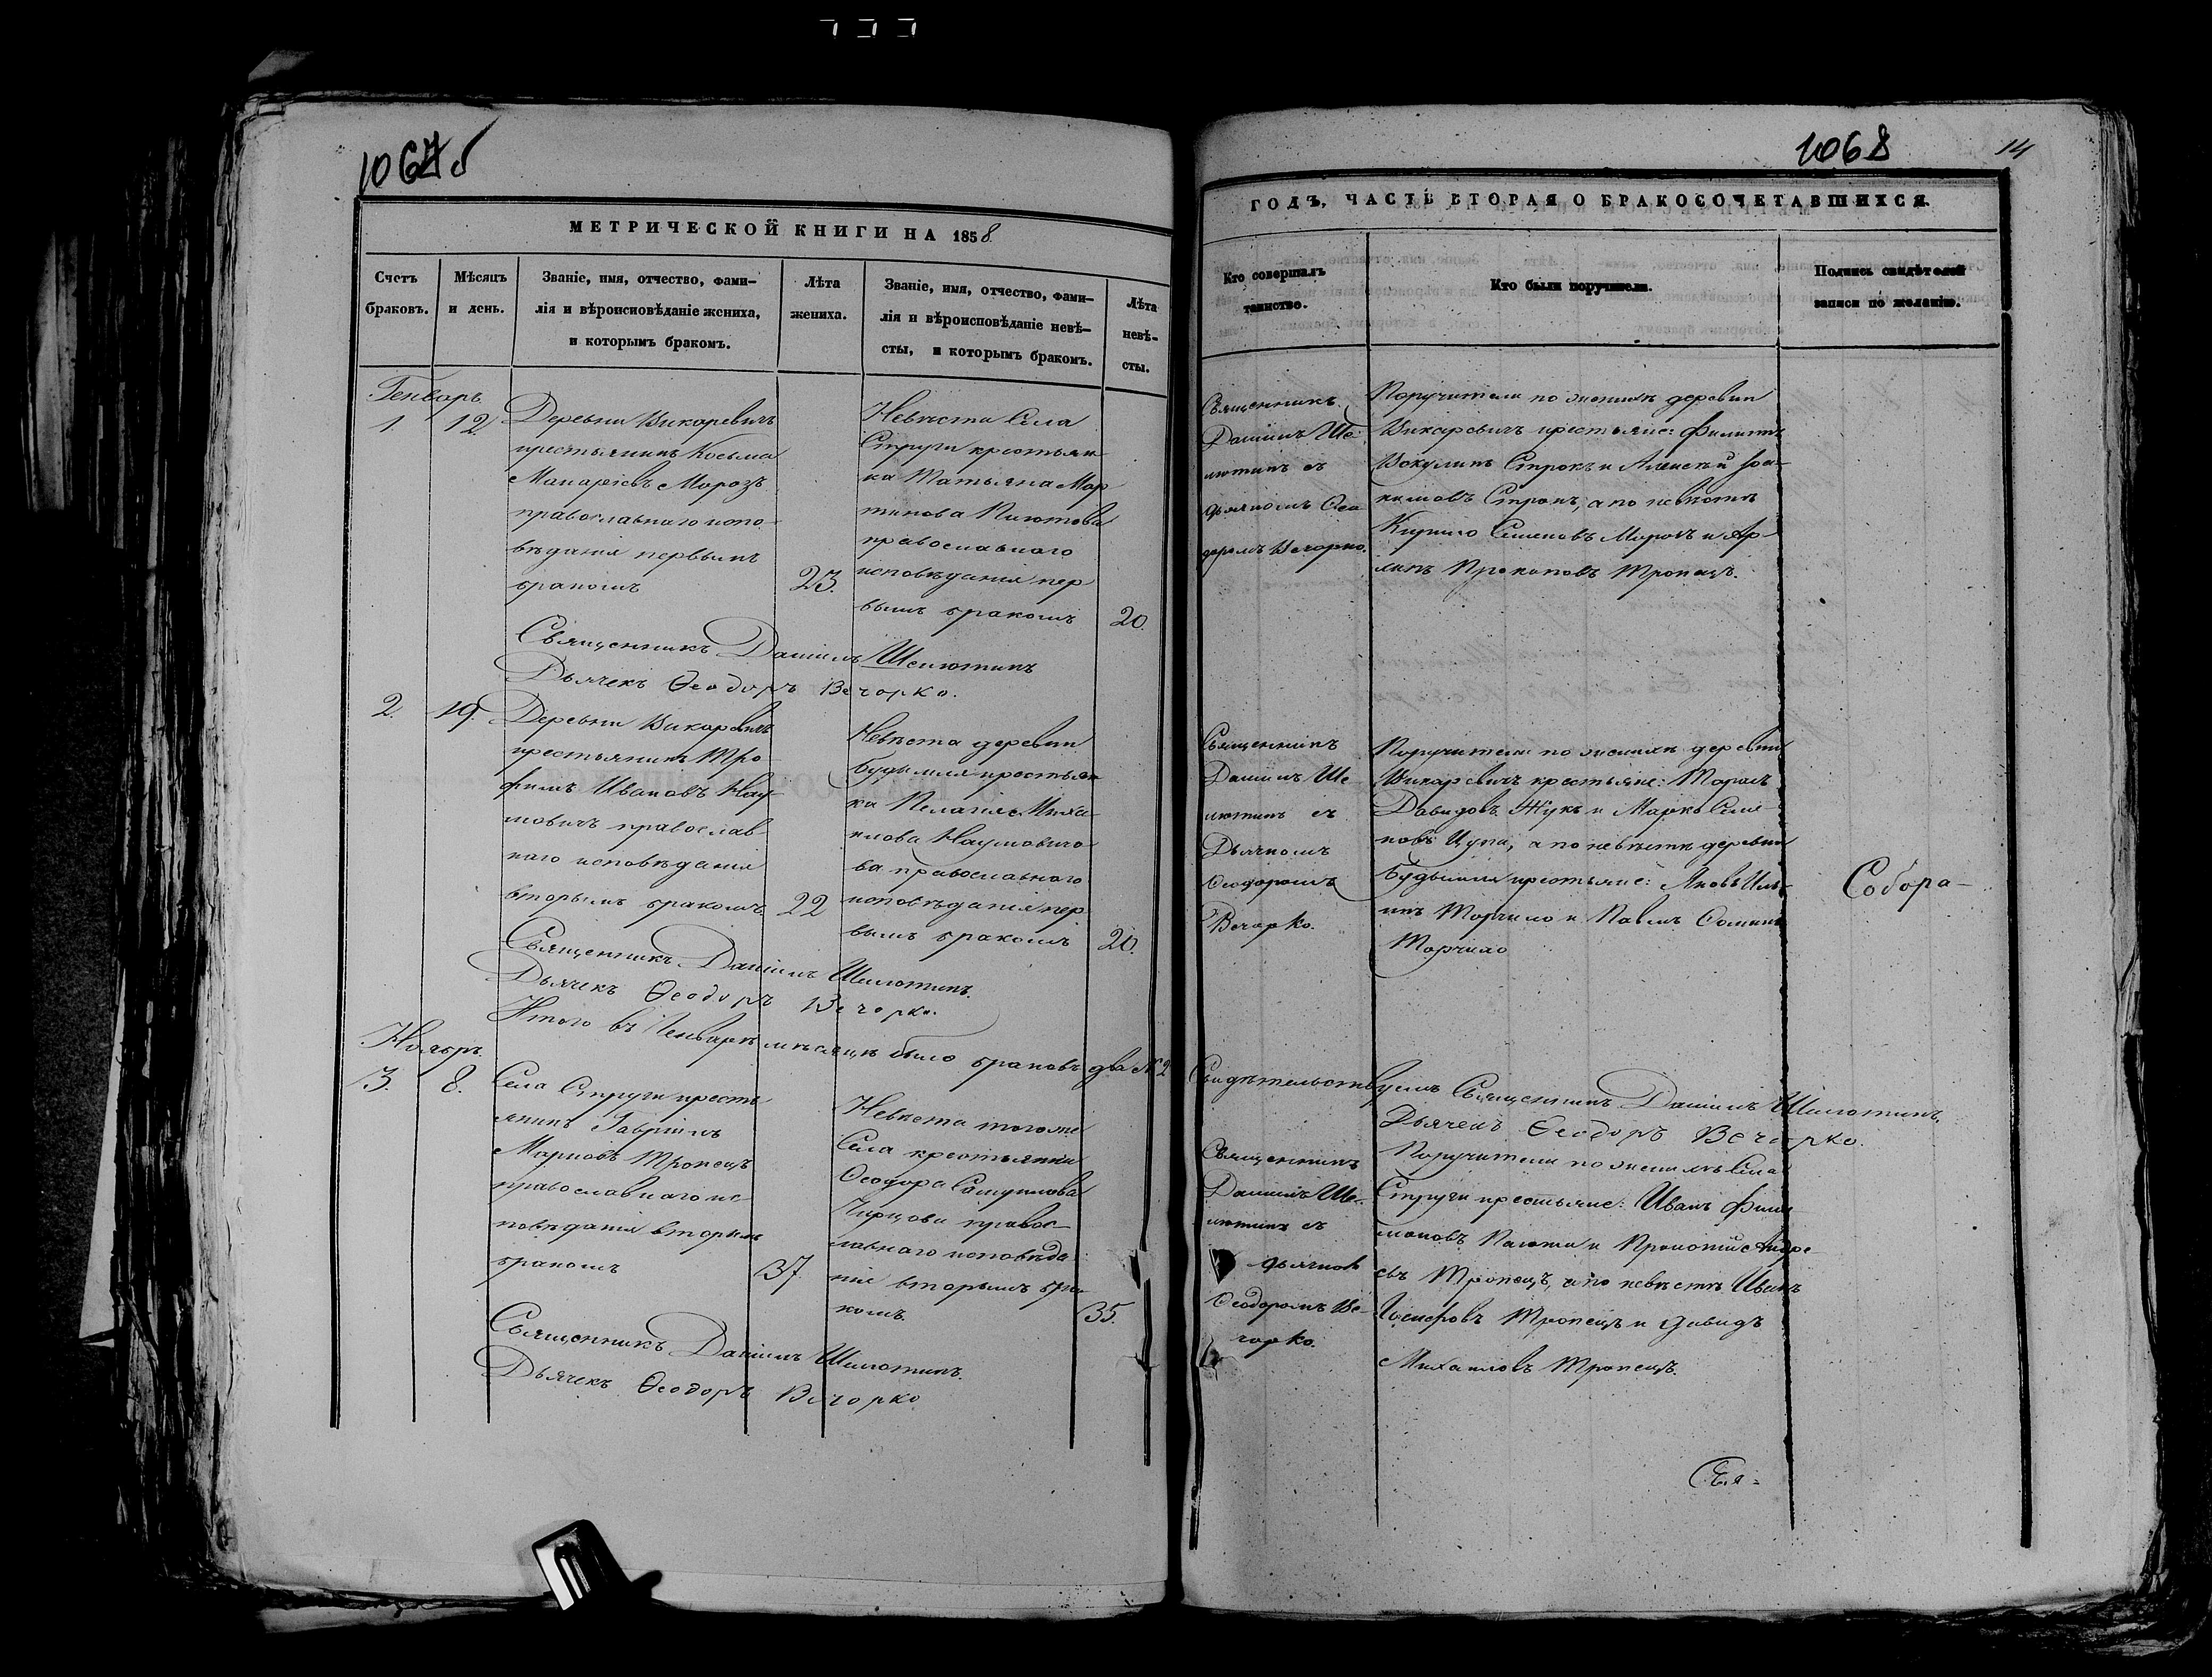 1068
14
МЕТРИЧЕСКОЙ КНИГИ НА 1858
Счетъ браковъ.
Мѣсяцъ и день.
Званіе, имя, отчество, фами-
лія и вѣроисповѣданіе жениха,
и которымъ бракомъ.
Лѣта
жениха.
Званіе, имя, отчество, фами-
лія и вѣроисповѣданіе невѣ-
сты, и которымъ бракомъ.
Лѣта
невѣ-
сты.
Генварь
1
12
Деревни Викаревичъ
крестьянинъ Косьма
Макаріевъ Морозъ
православнаго испо-
вѣданія первымъ
бракомъ
23.
Невѣста Села
Струги крестьян-
ка Татьяна Мар
тинова
православнаго
исповѣданія пер
вымъ бракомъ
20.
Священникъ Даніилъ Шелютинъ
Дьячекъ Ѳеодоръ Вечорко.
2.
19.
Деревни Викаревичъ
крестьянинъ Тро
фимъ Ивановъ Нау-
мовичъ православ
наго исповѣданія
вторымъ бракомъ
22
Невѣста деревни
Будымля крестьян
ка Пелагія Миха
илова Наумовичо
ва православнаго
исповѣданія пер
вымъ бракомъ
20.
Священникъ Даніилъ Шелютинъ.
Дьячекъ Ѳеодоръ Вечорко.
Итого въ Генварѣ мѣсяцѣ было браковъ два № 2
Ноябрь
3.
8.
Села Струги кресть
янинъ Гавріилъ
Марковъ Тропецъ
православнаго ис
повѣданія вторымъ
бракомъ
37.
Невѣста тогоже
Села крестьянка
Ѳеодора Самуилова
правос-
лавнаго исповѣда
нія вторымъ бра
комъ.
35.
Священникъ Даніилъ Шелютинъ.
Дьячекъ Ѳеодоръ Вечорко
ГОДЪ, ЧАСТЬ ВТОРАЯ О БРАКОСОЧЕТАВШИХСЯ.
Кто совершалъ
таинство.
Кто были поручители.
Подпись свидѣтелей
записи по желанію.
Священникъ
Даніилъ Ше-
лютинъ съ
дьячкомъ Ѳео
доромъ Вечорко.
Поручители по женихѣ деревни
Викаревичъ крестьяне: Филиппъ
Строкъ и Алексѣй
Строкъ, а по невѣстѣ
Кирило Семеновъ и
Прокоповъ Тропецъ.
Священникъ
Даніилъ Ше
лютинъ съ
Дьячкомъ
Ѳеодоромъ
Вечорко.
Поручители по женихѣ деревни
Викаревичъ крестьяне: Тарасъ
Давидовъ Жукъ и Марко Семе
новъ Цупа, а по невѣстѣ деревни
Будымля крестьяне: Яковъ Иль-
инъ Торчило и Павелъ Ѳоминъ
Торчило
Собора-
Свидѣтельствуемъ Священникъ Даніилъ Шелютинъ,
Дьячекъ Ѳеодоръ Вечорко.
Священникъ
Даніилъ Ше-
лютинъ съ
дьячком
Ѳеодоромъ Ве-
чорко.
Поручители по женихѣ Села
Струги крестьяне: Иванъ Фили
моновъ и Прокопій Андре
евъ Тропецъ, а по невѣстѣ Иванъ
Тропецъ и Давидъ
Михаиловъ Тропецъ.